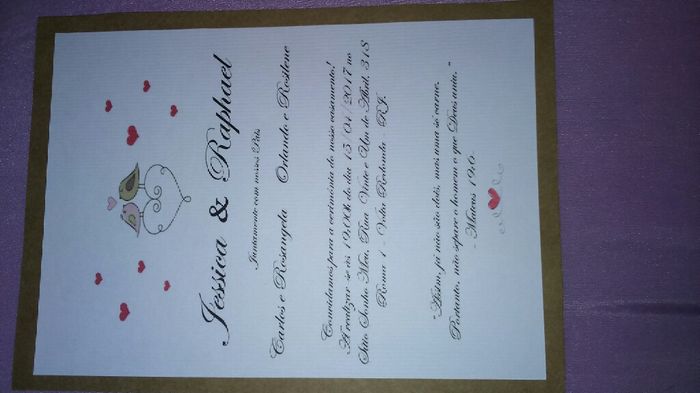 Jéssica & Raphael
Juntamente com nossos Pais
Carlos e Rosangela Orlando e Rosilene
Convidamos para a cerimônia do nosso casamento!
A realizar-se às 19:00h do dia 15/04/2017 no
Sítio Sonho Meu, Rua Vinte e Um de Abril, 318
Roma 1 - Volta Redonda - RJ.
"Assim, já não são dois, mas uma só carne.
Portanto, não separe o homem o que Deus uniu."
- Mateus 19:6-